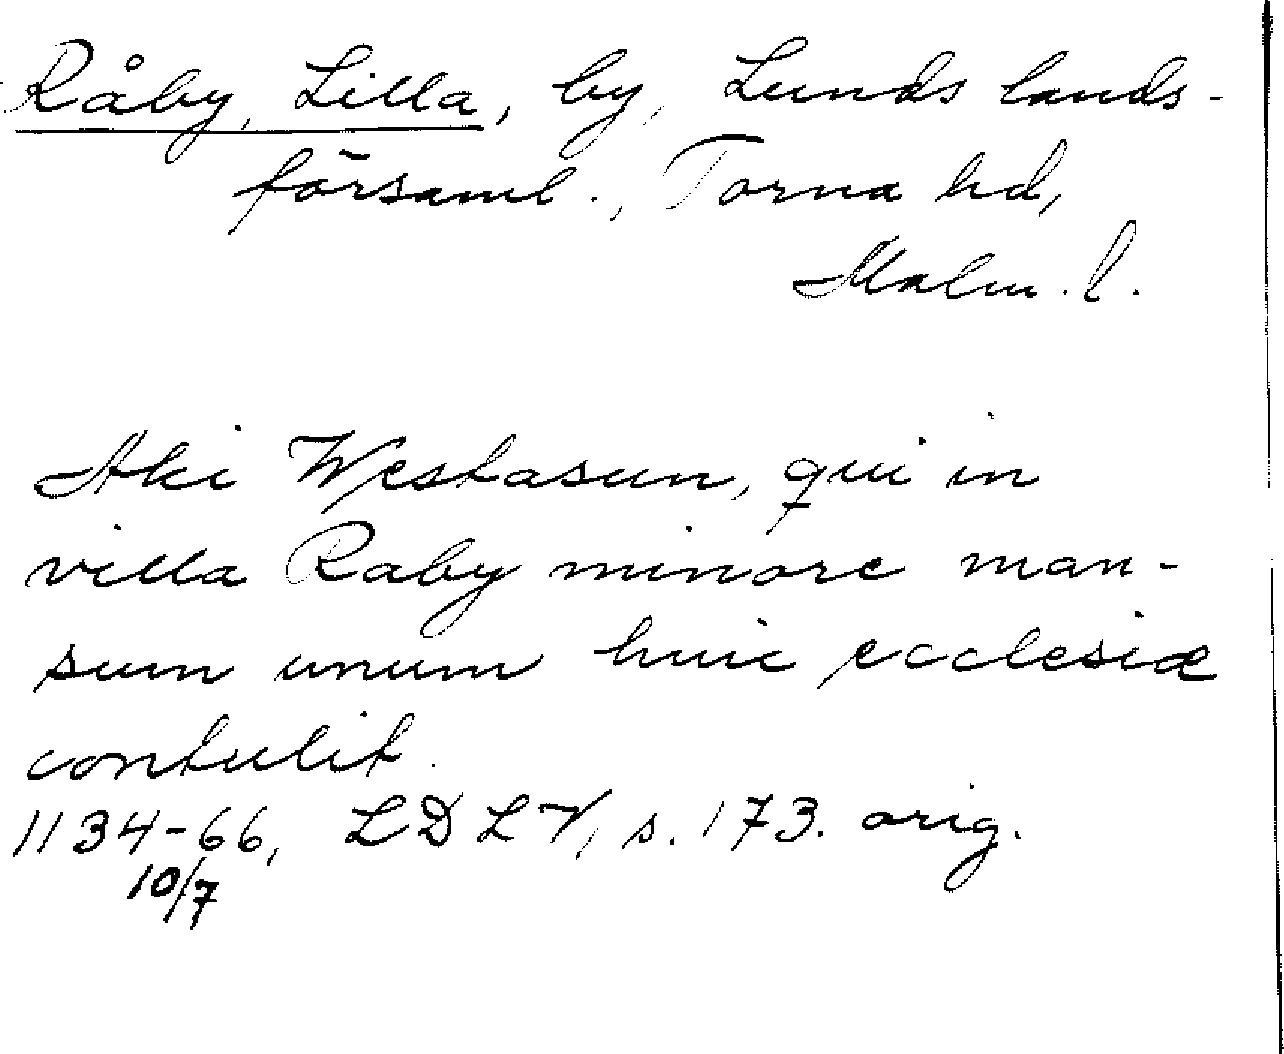 Råby, Lilla, by, Lunds lands-
församl., Torna hd,
Malm. l.
Aki Westasun, qui in
villa Raby minore man-
sum unum huic ecclesiæ
contulit.
1134-66, LDLV, s. 173. orig.
10/7